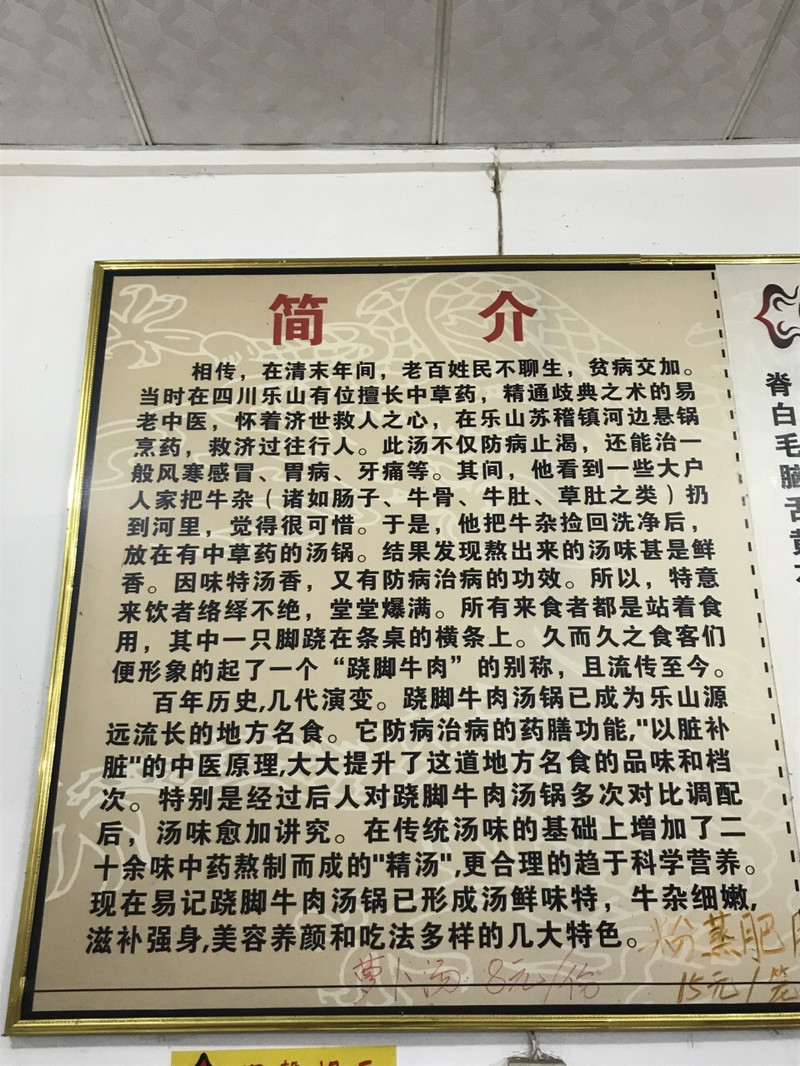 简 介
相传，在清末年间，老百姓民不聊生，贫病交加。
当时在四川乐山有位擅长中草药，精通歧典之术的易
老中医，怀着济世救人之心，在乐山苏稽镇河边悬锅
烹药，救济过往行人。此汤不仅防病止渴，还能治一
般风寒感冒、胃病、牙痛等。其间，他看到一些大户
人家把牛杂（诸如肠子、牛骨、牛肚、草肚之类）扔
到河里，觉得很可惜。于是，他把牛杂捡回洗净后，
放在有中草药的汤锅。结果发现熬出来的汤味甚是鲜
香。因味特汤香，又有防病治病的功效。所以，特意
来饮者络绎不绝，堂堂爆满。所有来食者都是站着食
用，其中一只脚跷在条桌的横条上。久而久之食客们
便形象的起了一个“跷脚牛肉”的别称，且流传至今。
百年历史,几代演变。跷脚牛肉汤锅已成为乐山源
远流长的地方名食。它防病治病的药膳功能,"以脏补
脏"的中医原理,大大提升了这道地方名食的品味和档
次。特别是经过后人对跷脚牛肉汤锅多次对比调配
后，汤味愈加讲究。在传统汤味的基础上增加了二
十余味中药熬制而成的"精汤",更合理的趋于科学营养。
现在易记跷脚牛肉汤锅已形成汤鲜味特，牛杂细嫩,
滋补强身,美容养颜和吃法多样的几大特色。
萝卜汤 8元/份
粉蒸肥
15元/笼
脊
白
毛
脑
舌
黄